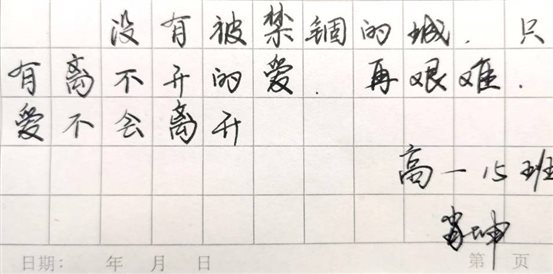 没有被禁锢的城．只
有离不开的爱．再艰难．
爱不会离开
高一15班
肖坤
日期： 年 月 日 第 页